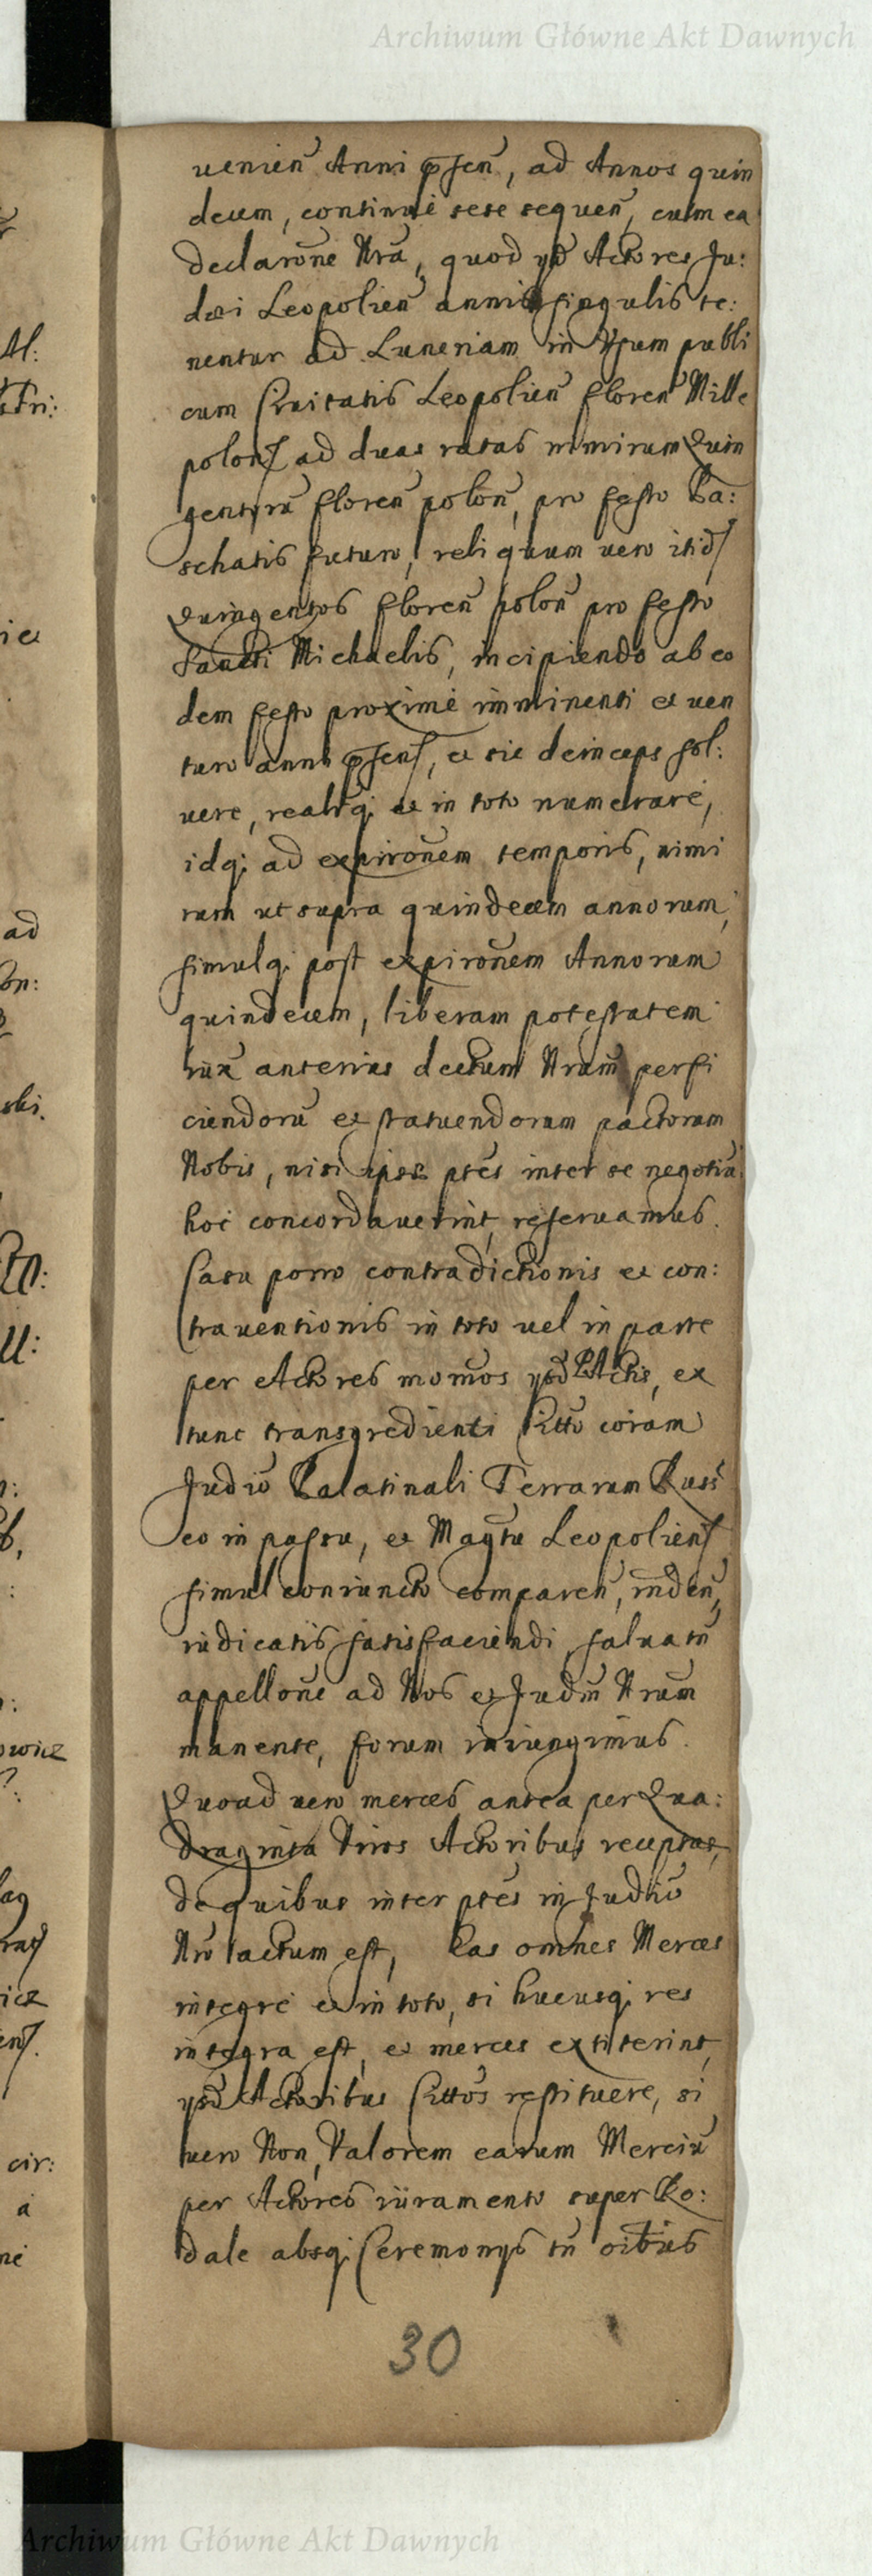 Archiwum Główne Akt Dawnych
uenien̄ Anni p̄sen̄, ad Annos quin
decem, continué sese sequen̄, cum ea
declarōne Nrā, quod ijd̄ Actores Ju:
dæi Leopolien̄ annis singulis te:
nentur ad Luneriam in Vsum publi
cum Ciuitatis Leopolien̄ floren̄ Mille
polon̄ ad duas ratas nimirum Quin
gentorū floren̄ polon̄, pro festo Pa:
schatis futuro, reliquum uero itid̄
Quingentos floren̄ polon̄ pro festo
Sancti Michaelis, incipiendo ab eo
dem festo proximé imminenti et uen
turo anni p̄sen̄, et sic deinceps sol:
uere, realrq; et in toto numeraré,
idq; ad expirōnem temporis, nimi
rum ut supra quindecem annorum,
simulq; post expirōnem Annorum
quindecem, liberam potestatem
iux̄ anterius dectum Nrum̄ perfi
ciendorū et statuendorum pactorum
Nobis, nisi ipsæ ptēs inter se negotiū
hoc concordauerint, reseruamus.
Casu porro contradictionis et con:
trauentionis in toto uel in parte
per Actores momōs Actis, ex
tunc transgredienti Cittō coram
Judiō Palatinali Terrarum Russ
eo in passu, et Magtu Leopolien̄
simul coniuncto comparen̄,
iudicatis satisfaciendi, salua tn̄
appellōne ad Nos et Judm̄ Nrum
manente, forum iniungimus.
Quoad uero merces antea per Qua:
draginta Viros Actoribus receptas,
de quibus inter ptēs in Judiō
Nrō actum est, Eas omnes Merces
integré et in toto, si hucusq; res
integra est, et merces extiterint,
ijsd̄ Actoribus Cittōs restituere, si
uero Non, Valorem earum Merciū
per Actores iuramento super Ro:
dale absq; Ceremonijs tn̄ oib̄us
30
Archiwum Główne Akt Dawnych